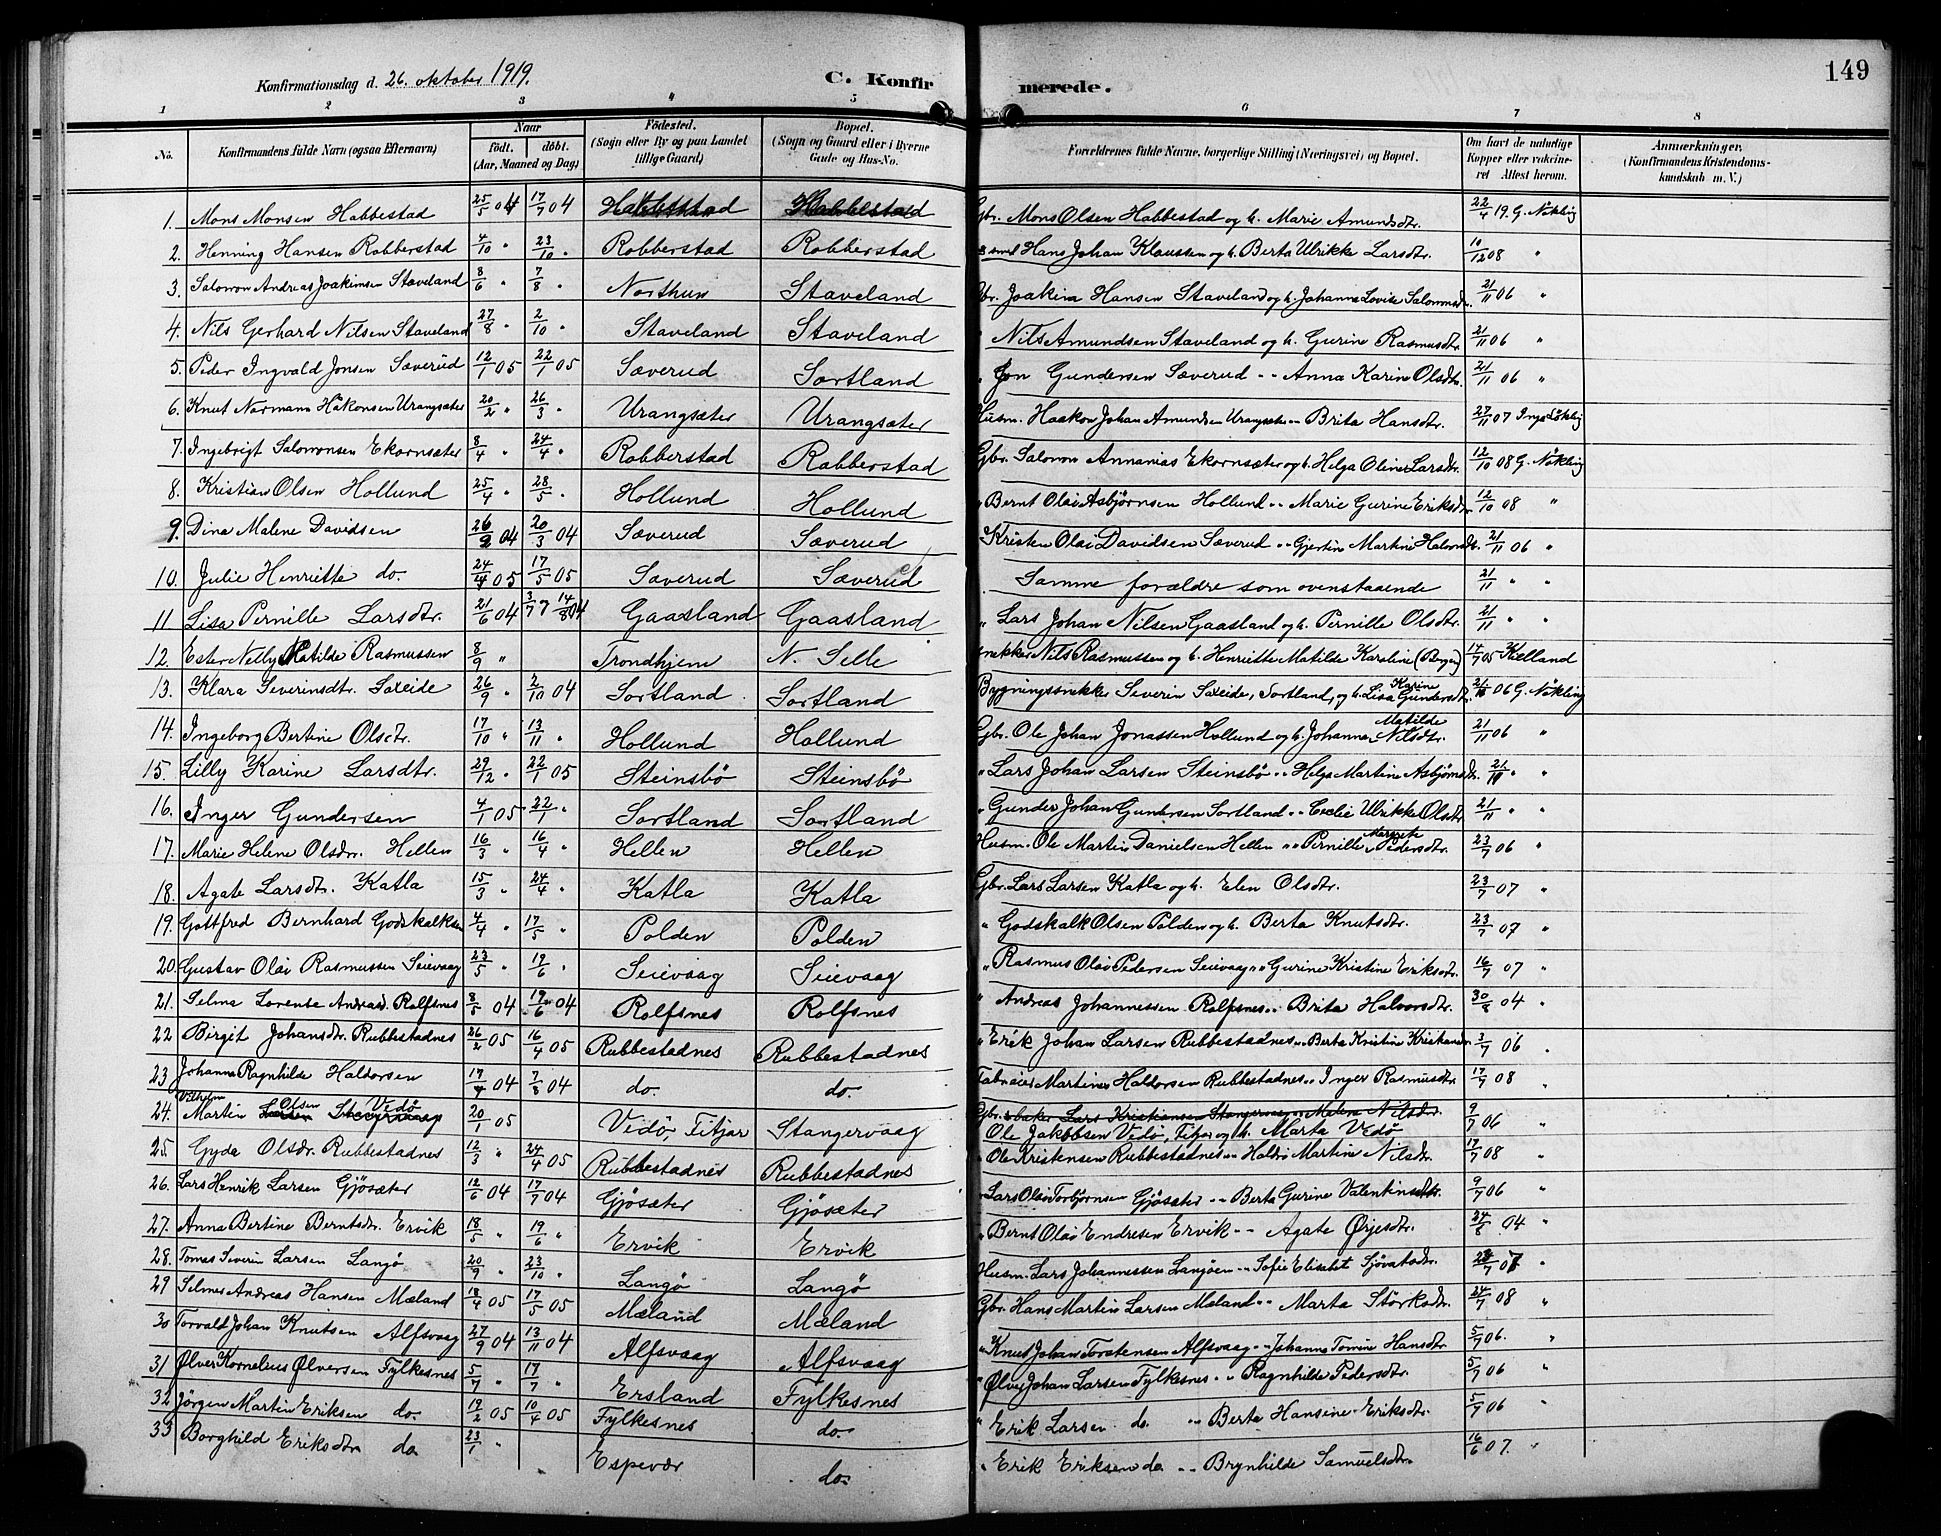 149
Konfirmationsdag d. 26. oktober 1919. C. Konfirmerede.
1 2 3 " 5 6 7 8
No. Konfirmandens fulde Navn (ogsaa Efternavn) Naar født. døbt. (Aar, Maaned og Dag) Fødested. (Sogn eller By og paa Landet tillige Gaard) Bopæl. (Sogn og Gaard eller i Byerne Gade og Hus-No. Forældrenes fulde Navne, borgerlige Stilling (Næringsvei) og Bopæl. Om havt de naturlige Kopper eller vaccineret. Attest herom. Anmærkninger. (Konfirmandens Kristendomskundskab m. V.)
1. Mons Monsen Habbestad 25/5 04 17/7 04 Habbestad Habbestad Gbr. Mons Olsen Habbestad og h. Marie Amundsdtr. 22/4 19. G. Nökling
2. Henning Hansen Robberstad 4/10 " 23/10 " Robberstad Robberstad smed Hans Johan Klaussen og h. Berta Ulrikke Larsdtr. 10/12 08 "
3. Salomon Andreas Joakimsen Staveland 8/6 " 7/8 " Northun Staveland Gbr. Joakim Hansen Staveland og h. Johanna Lovise Salomonsdtr. 21/11 06 "
4. Nils Gerhard Nilsen Staveland 27/8 " 2/10 " Staveland Staveland " Nils Amundsen Staveland og h. Gurine Rasmusdtr. 21/11 06 "
5. Peder Ingvald Jonsen Sæverud 12/1 05 22/1 05 Sæverud Sortland " Jon Gundersen Sæverud " " Anna Karine Olsdtr. 21/11 06 "
6. Knut Normann Håkonsen Urangsæter 20/2 " 26/3 " Urangsæter Urangsæter Husm. Haakon Johan Amundsen Urangsæter " " Brita Hansdtr. 27/11 07
7. Ingebrigt Salomonsen Ekornsæter 8/4 " 24/4 " Robberstad Robberstad Gbr. Salomon Annanias Ekornsæter og h. Helga Oline Larsdtr. 12/10 08 G. Nökling
8. Kristian Olsen Hollund 25/4 " 28/5 " Hollund Hollund " Bernt Olai Asbjørnsen Hollund " " Marie Gurine Eriksdtr. 12/10 08 "
9. Dina Malene Davidsen 26/2 04 20/3 04 Sæverud Sæverud Kristen Olai Davidsen Sæverud " " Gjertine Martine Halvorsdtr. 21/11 06 "
10. Julie Henriette do. 24/4 05 17/5 05 Sæverud Sæverud Samme forældre som ovenstaaende 21/11 " "
11 Lisa Pernille Larsdtr. 21/6 04 3/7 7 14/8 04 Gaasland Gaasland " Lars Johan Nilsen Gaasland og h. Pernille Olsdtr. 21/11 " "
12. Ester Nelly Matilde Rasmussen 8/9 " Trondhjem N. Selle snekker Nils Rasmussen og h. Henriette Matilde Karoline (Bergen) 14/7 05 Kielland
13. Klara Severinsdtr. Saxeide 26/9 " 2/10 04 Sortland Sortland Bygningssnekker Severin Saxeide, Sortland, og h. Lisa Karine Gundersdtr. 21/11 06 G. Nökling
14. Ingeborg Bertine Olsdtr. 17/10 " 13/11 " Hollund Hollund Gbr. Ole Johan Jonassen Hollund og h. Johanna Matilde Nilsdtr. 21/11 06 "
15. Lilly Karine Larsdtr. 29/12 " 22/1 05 Steinsbö Steinsbö " Lars Johan Larsen Steinsbö " " Helga Martine Asbjørnsdtr. 21/11 " "
16. Inger Gundersen 4/1 05 22/1 " Sortland Sortland " Gunder Johan Gundersen Sortland " " Cecilie Ulrikke Olsdtr. 21/11 " "
17. Marie Helene Olsdtr. Hellen 16/3 " 16/4 " Hellen Hellen Husm. Ole Martin Danielsen Hellen " " Pernille Margrete Pedersdtr. 23/7 06 "
18. Agate Larsdtr. Katla 15/3 " 24/4 " Katla Katla Gbr. Lars Larsen Katla og h. Elen Olsdtr. 23/7 07 "
19. Gottfred Bernhard Godskalksen 4/4 " 17/5 " Polden Polden " Godskalk Olsen Polden og h. Berta Knutsdtr. 23/7 07 "
20. Gustav Olai Rasmussen Seievaag 23/5 " 19/6 " Seievaag Seievaag " Rasmus Olai Pedersen Seievaag " " Gurine Kristine Eriksdtr. 16/7 07 "
21. Selma Lorense Andreasd. Rolfsnes 8/5 04 19/6 04 Rolfsnes Rolfsnes " Andreas Johannessen Rolfsnes " " Brita Halvorsdtr. 30/8 04 "
22 Birgit Johansdtr. Rubbestadnes 26/2 05 16/4 05 Rubbestadnes Rubbestadnes " Erik Johan Larsen Rubbestadnes " " Berta Kristine Kristiansdtr. 3/7 06 "
23 Johanna Ragnhilde Haldorsen 17/7 04 7/8 04 do. do. Fabrikeier Martines Haldorsen Rubbestadnes " " Inger Rasmusdtr. 17/7 08 "
24. Vilhelm Martin Larsen Olsen Stangervaag Vedö 20/1 05 Vedö, Fitjar Stangervaag Gbr. & baker Lars Kristiansen Stangervaag " " Malene Nilsdtr. 9/7 06 "
Ole Jakobsen Vedö, Fitjar og h. Marta Vedö
25. Gyda Olsdr. Rubbestadnes 12/3 " 24/4 05 Rubbestadnes Rubbestadnes " Ole Kristensen Rubbestadnes " " Haldis Martine Nilsdtr. 17/7 08 "
26. Lars Henrik Larsen Gjösæter 12/6 04 17/7 04 Gjösæter Gjösæter " Lars Olai Torbjørnsen Gjösæter " " Berta Gurine Valentinsdtr. 9/7 06 "
27. Anna Bertine Berntsdr. Ervik 18/5 " 19/6 " Ervik Ervik " Bernt Olai Endresen Ervik " " Agate Ørjesdtr. 24/8 04 "
28. Tomas Severin Larsen Langö 20/9 " 23/10 " Langö Langö Husm. Lars Johannessen Langöen " " Sofie Elisabet Sjovatsdtr. 07 "
29 Selmer Andreas Hansen Mæland 18/4 05 17/5 05 Mæland Mæland Gbr. Hans Martin Larsen Mæland " " Marta Störksdtr. 24/7 08 "
30 Torvald Johan Knutsen Alfsvaag 27/9 04 13/11 04 Alfsvaag Alfsvaag " Knut Johan Torstensen Alfsvaag " " Johanna Tomine Hansdtr. 5/7 06. "
31 Ølver Kornelius Ølversen Fylkesnes 5/7 " 17/7 " Ersland Fylkesnes " Ølver Johan Larsen Fylkesnes " " Ragnhilde Pedersdtr. 5/7 06 "
32 Jörgen Martin Eriksen do. 19/2 05 10/4 05 Fylkesnes do. " Erik Larsen do. " " Berta Hansine Eriksdtr. 5/7 06 "
33 Borghild Eriksdtr. do 23/1 " Espevær do. " Erik Eriksen do " " Brynhilde Samuelsdtr. 16/6 07. "